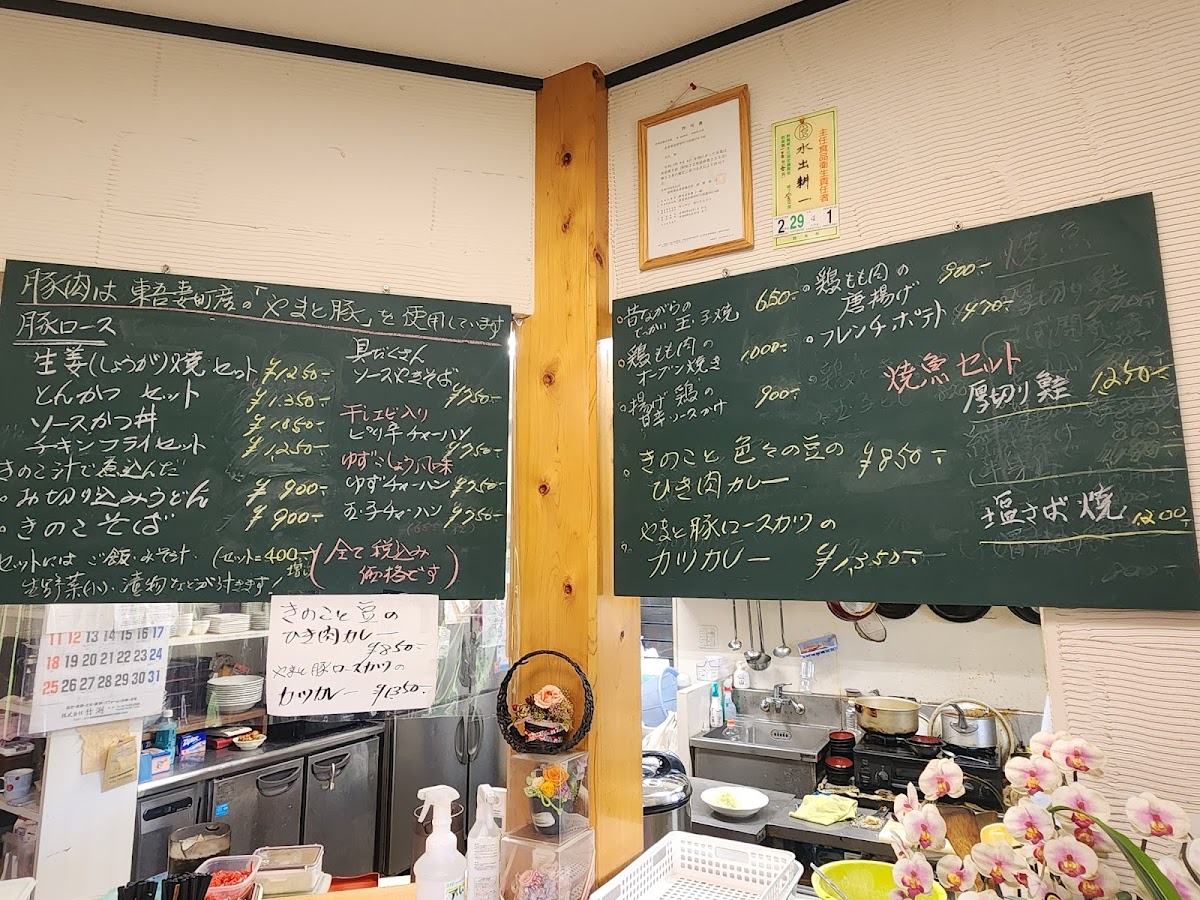 豚肉は 東吾妻町産の「やまと豚」を使用しています
豚ロース
生姜(しょうが)焼セット ¥1250-
とんかつ セット ¥1.350-
ソースかつ丼 ¥1.050-
チキンフライセット ¥1,250-
きのこ汁で煮込んだ
お切り込みうどん ¥900-
きのこそば ¥900-
セットには ご飯・みそ汁・
生野菜(小)、漬物などが付きます!
(セット=400-増し)
具だくさん
ソースやきそば ¥750-
干しエビ入り
ピリ辛チャーハン ¥750-
ゆずこしょう風味
ゆずチャーハン ¥750-
玉子チャーハン ¥750-
(全て税込み
価格です)
昔ながらの
玉子焼 650-
鶏もも肉の
オーブン焼き 1000-
揚げ鶏の
甘辛ソースがけ 900-
鶏もも肉の
唐揚げ 900-
フレンチポテト 470-
きのこと 色々の豆の
ひき肉カレー ¥850-
やまと豚ロースカツの
カツカレー ¥1,350-
焼魚
焼魚セット
厚切り鮭 1250-
塩さば焼 1200-
きのこと豆の
ひき肉カレー
¥850-
やまと豚ロースカツの
カツカレー ¥1350-
主任食品衛生責任者
水出耕一
2 29 1
11 12 13 14 15 16 17
18 19 20 21 22 23 24
25 26 27 28 29 30 31